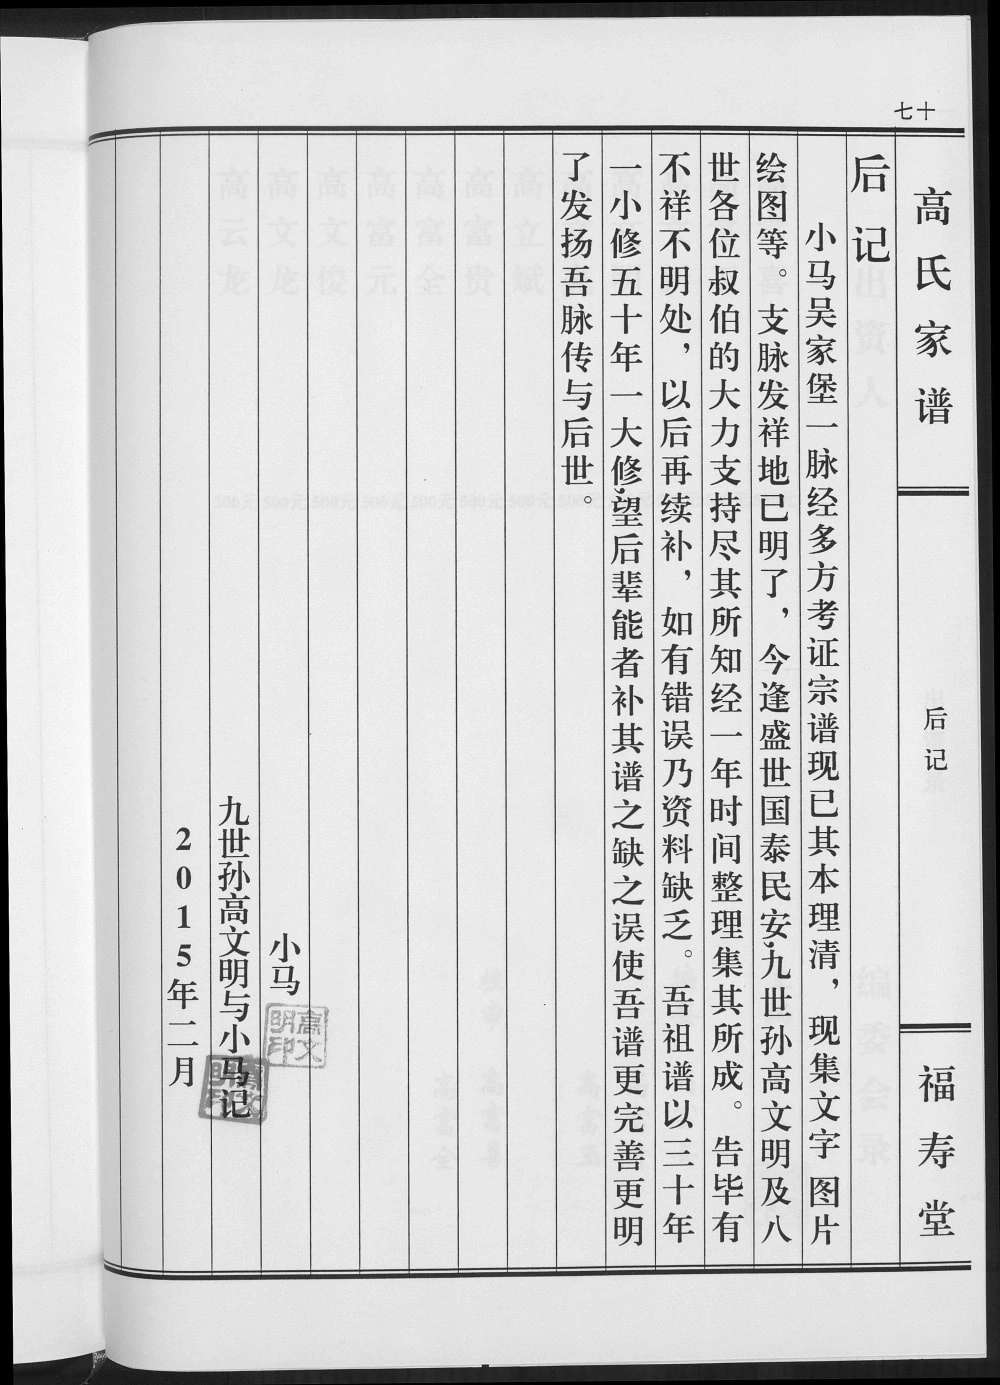 七十
高氏家谱
后记
福寿堂
后记
小马吴家堡一脉经多方考证宗谱现已其本理清，现集文字 图片
绘图等。支脉发祥地已明了，今逢盛世国泰民安，九世孙高文明及八
世各位叔伯的大力支持尽其所知经一年时间整理集其所成。告毕有
不祥不明处，以后再续补，如有错误乃资料缺乏。吾祖谱以三十年
一小修五十年一大修，望后辈能者补其谱之缺之误使吾谱更完善更明
了发扬吾脉传与后世。
小马
高文明印
九世孙高文明与小马记
高文明印
2015年二月